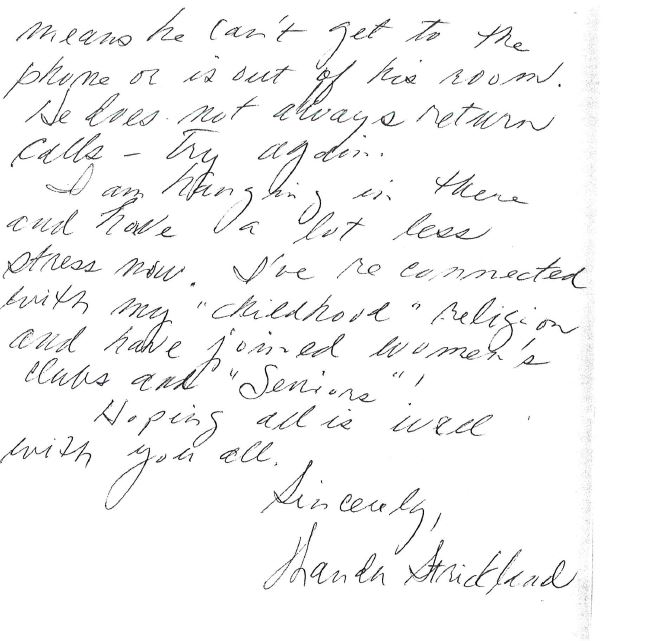 means he can't get to the
phone or is out of his room.
He does not always return
calls – Try again.
I am hanging in there
and have a lot less
stress now. I've reconnected
with my "childhood" religion
and have joined women's
clubs and "Seniors"!
Hoping all is well
with you all.
Sincerely,
Strickland